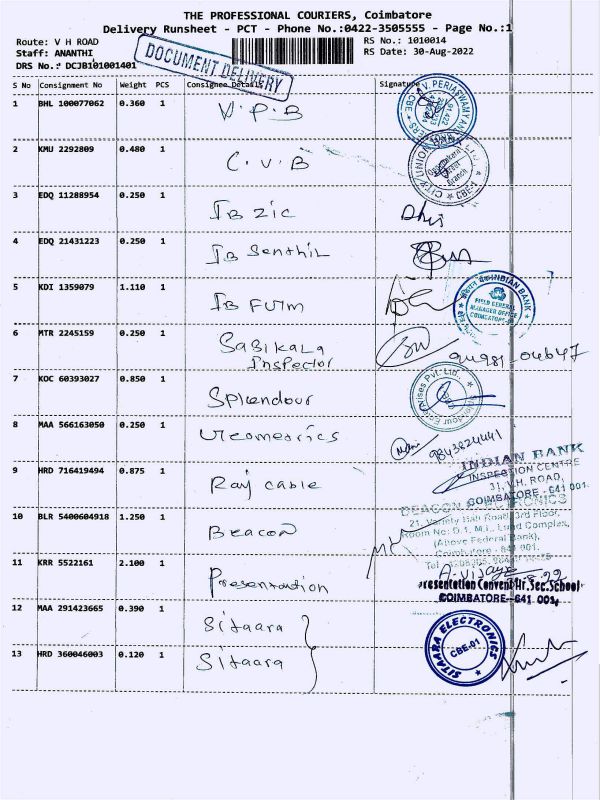 THE PROFESSIONAL COURIERS, Coimbatore
Delivery Runsheet - PCT - Phone No.:0422-3505555 - Page No.:1
Route: V H ROAD
RS No.: 1010014
Staff: ANANTHI
RS Date: 30-Aug-2022
DRS No.: DCJB101001401
DOCUMENT DELIVERY
S No Consignment No Weight PCS Consignee Details Signature
1 BHL 100077062 0.360 1 V.P.B
V. PERIASWAMY
CBE
2 KMU 2292809 0.480 1 C.V.B
CITY UNION BANK LTD.
Branch
CBE-1
3 EDQ 11288954 0.250 1 IB ZIC
4 EDQ 21431223 0.250 1 IB Senthil
5 KDI 1359079 1.110 1 IB FGIM
INDIAN BANK
FIELD GENERAL
MANAGER OFFICE
COIMBATORE
6 MTR 2245159 0.250 1 Sasikala
Inspector
94981 04647
7 KOC 60393027 0.850 1 Splendour
Splendour Enterprises Pvt. Ltd.,
8 MAA 566163050 0.250 1
9843824441
9 HRD 716419494 0.875 1 Raj cable
INDIAN BANK
INSPECTION CENTRE
31, V.H. ROAD,
COIMBATORE - 641 001.
10 BLR 5400604918 1.250 1 Beacon
BEACON ELECTRONICS
21, Variety Hall Road, 3rd Floor,
Room No: D.1, M.L. Lund Complex,
(Above Federal Bank),
Coimbatore - 641 001.
11 KRR 5522161 2.100 1 Presentation
A. Vijaya
Presentation Convent Hr.Sec.School
COIMBATORE-641 001.
12 MAA 291423665 0.390 1 Sitaara
13 HRD 360046003 0.120 1 Sitaara
SITAARA ELECTRONICS
CBE-01